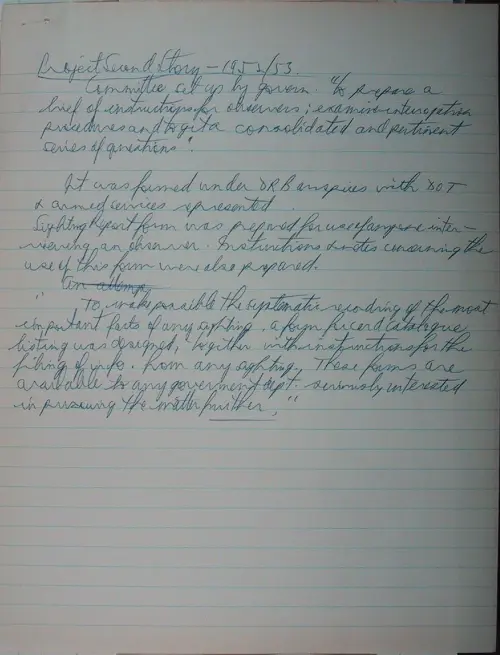 Project Second Story – 1952/53.
Committee set up by govern. "to prepare a
brief of instructions for observers; examine interception
procedures and to get a consolidated and pertinent
series of questions".
It was formed under DRB auspices with DOT
& armed services represented.
Sighting Report form was prepared for use of anyone inter-
viewing an observer. Instructions & notes concerning the
use of this form were also prepared.
An attemp
" To make possible the systematic recording of the most
important facts of any sighting, a form for card catalogue
listing was designed, together with instructions for the
filing of info. from any sighting. These forms are
available to any goverment dept. seriously interested
in pursuing the matter further."